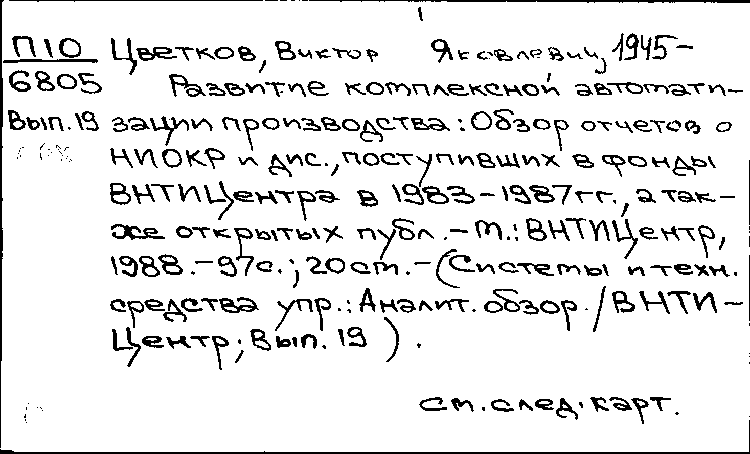 1
П10 Цветков, Виктор Яковлевич, 1945-
6805 Развитие комплексной автомати-
Вып. 19 зации производства: Обзор отчетов о
НИОКР и дис., поступивших в фонды
ВНТИЦентра в 1983-1987гг., а так-
же открытых публ. - М.: ВНТИЦентр,
1988. - 97с.; 20 ст. - (Системы и техн.
средства упр.: Аналит. обзор. / ВНТИ-
Центр; Вып. 19 ) .
см. след. карт.